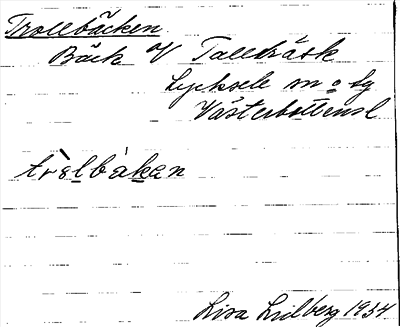 Trollbäcken
Bäck V Tallträsk
Lycksele sn o lg
Västerbottensl
trɛ̀lbäkan
Lisa Lidberg 1934